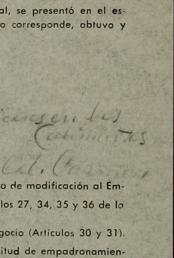 al, se presentó en el es-
o corresponde, obtuvo y
en los
o de modificación al Em-
los 27, 34, 35 y 36 de la
gocio (Artículos 30 y 31).
itud de empadronamien-